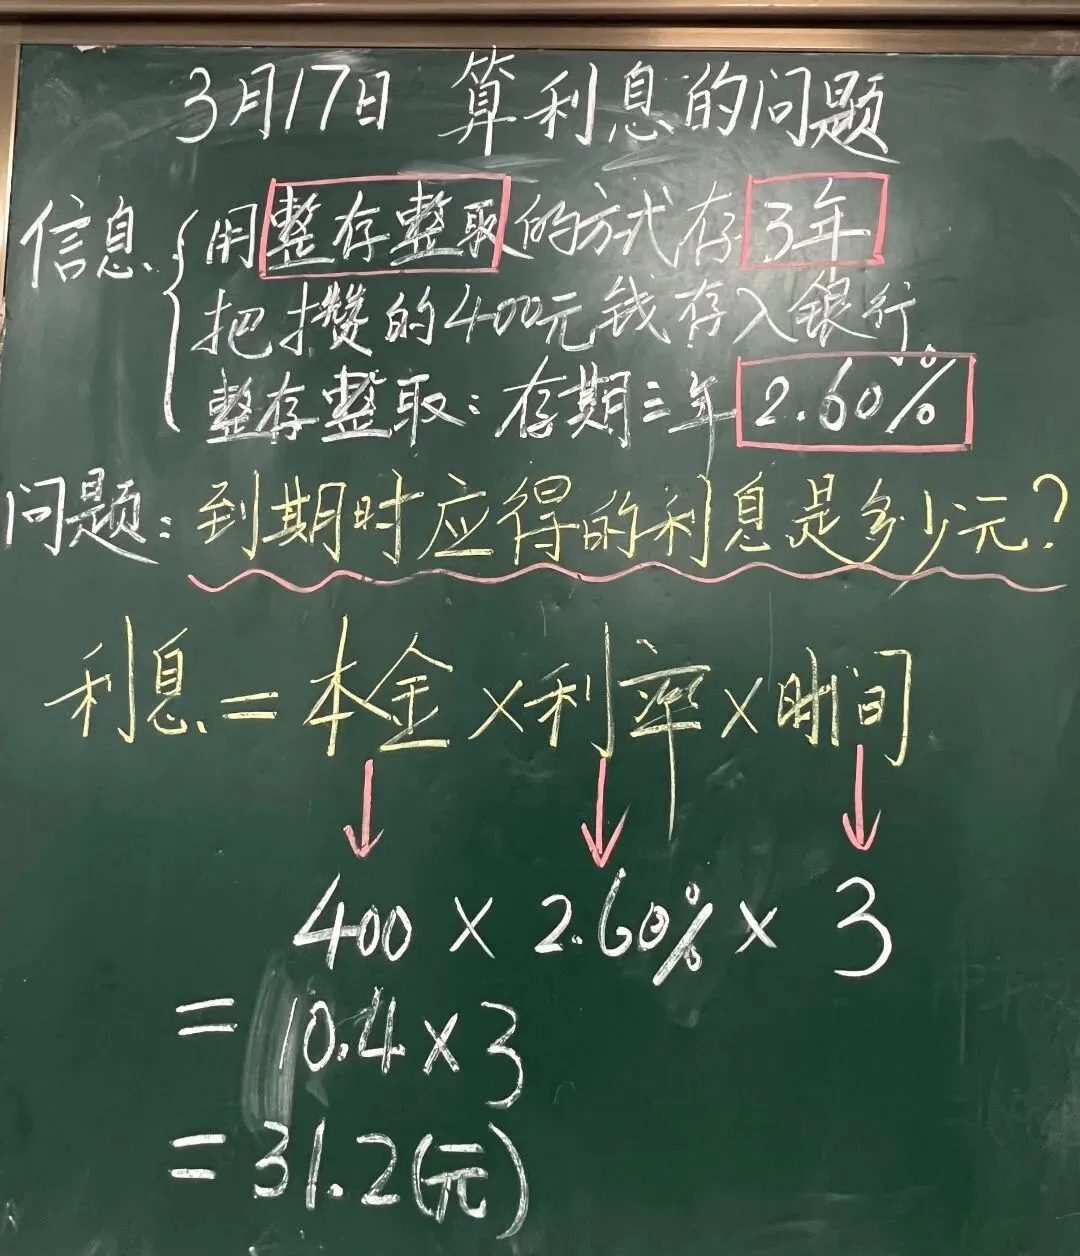 3月17日 算利息的问题
信息 用整存整取的方式存3年
把攒的400元钱存入银行
整存整取：存期三年 2.60%
问题：到期时应得的利息是多少元?
利息=本金×利率×时间
400 × 2.60% × 3
= 10.4×3
= 31.2(元)